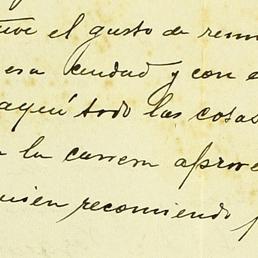 tuve el gusto de
esa ciudad y con
aquí todo las cosas
la carrera
quien recomiendo